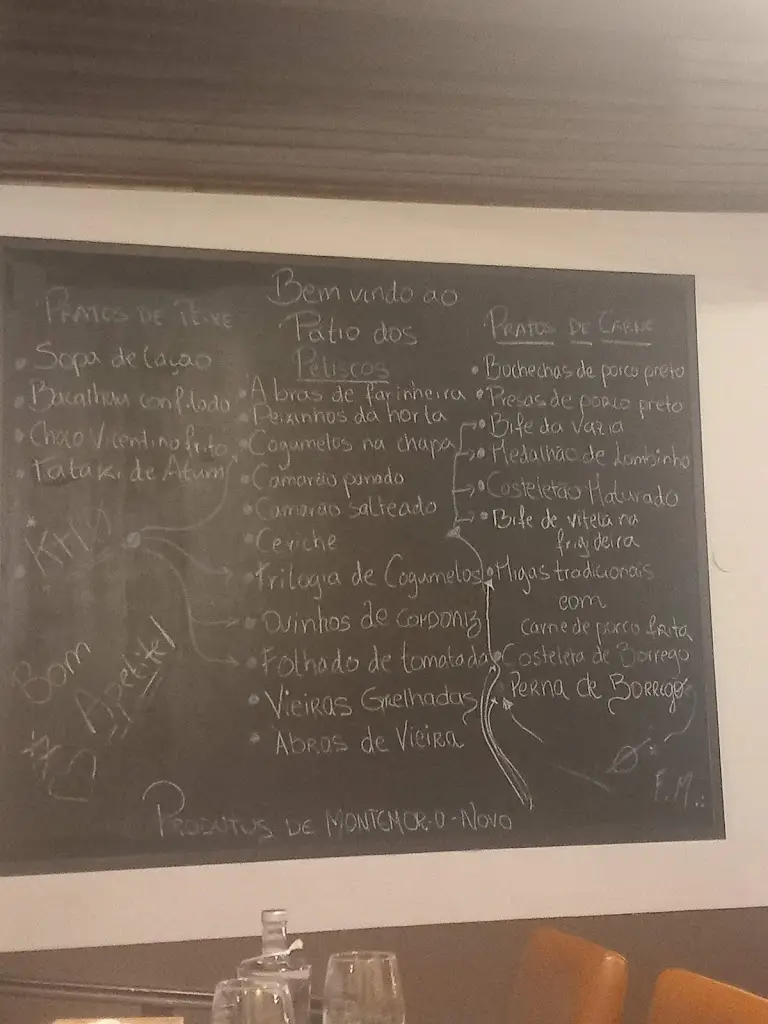 Bem vindo ao
Pátio dos
Petiscos
PRATOS DE PEIXE
• Sopa de Cação
• Bacalhau confitado
• Choco Vicentino frito
• Tataki de Atum
KM0
Bom
Apetite!
• Abras de farinheira
• Peixinhos da horta
• Cogumelos na chapa
• Camarão panado
• Camarão salteado
• Ceviche
• Trilogia de Cogumelos
• Ovinhos de CORDONIZ
• Folhado de tomatada
• VIEIRAS GRELHADAS
• ABROS DE VIEIRA
PRATOS DE CARNE
• Bochechas de porco preto
• Presas de porco preto
• Bife da VAZIA
• Medalhão de Lombinho
• Costeletão Maturado
• Bife de vitela na
frigideira
• Migas tradicionais
com
carne de porco frita
• Costeleta de Borrego
• PERNA DE BORREGO
F.M.:
PRODUTOS DE MONTEMOR-O-NOVO